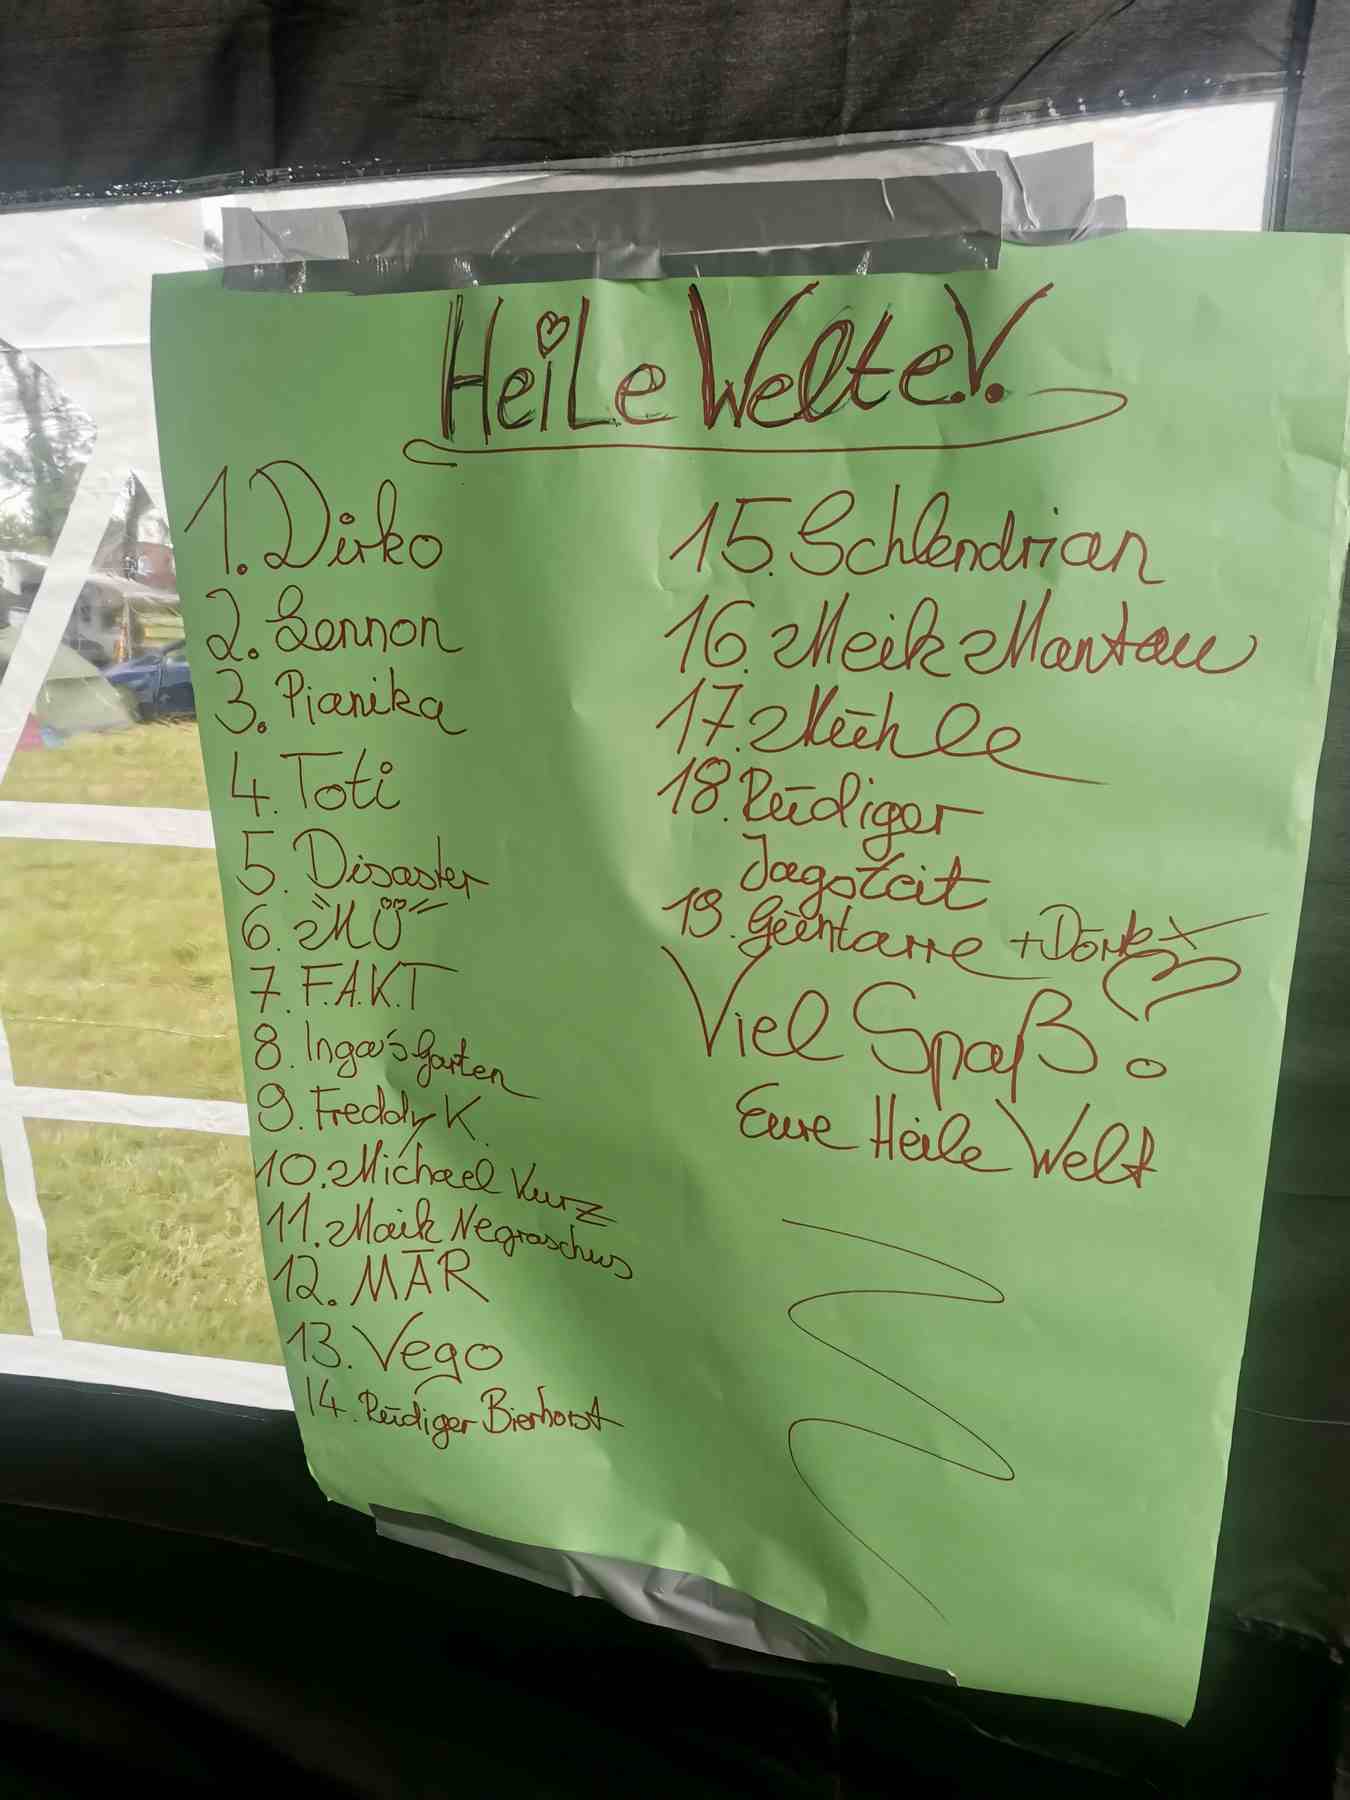 Heile Welt e.V.
1. Dirko
2. Lennon
3. Pianika
4. Toti
5. Disaster
6. "MÖ"
7. F.A.K.T
8. Inga's Garten
9. Freddy K.
10. Michael Kurz
11. Maik Negraschus
12. MĀR
13. Vego
14. Rüdiger Bierhorst
15. Schlendrian
16. Meik Mantau
17. Mühle
18. Rüdiger
Jagszeit
19. Géèntarre + Dörk
Viel Spaß!
Eure Heile Welt